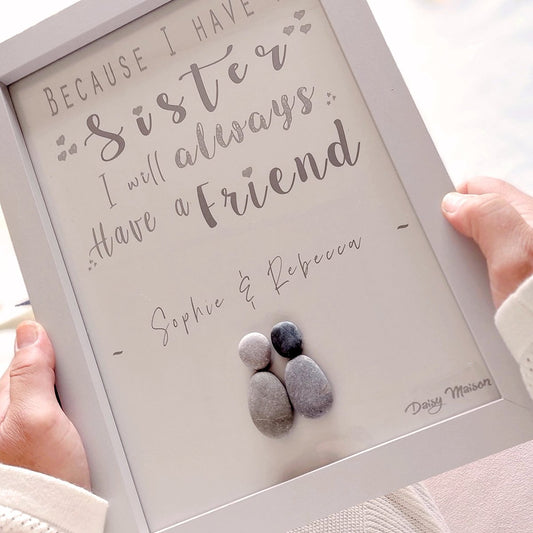 BECAUSE I HAVE A
Sister
I will always
Have a Friend
~ Sophie & Rebecca ~
Daisy Maison